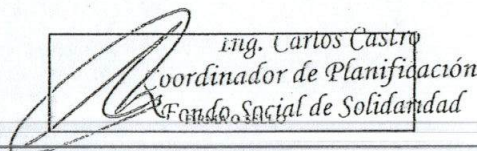 Ing. Carlos Castro
Coordinador de Planificación
Fondo Social de Solidaridad
FIRMA O SELLO